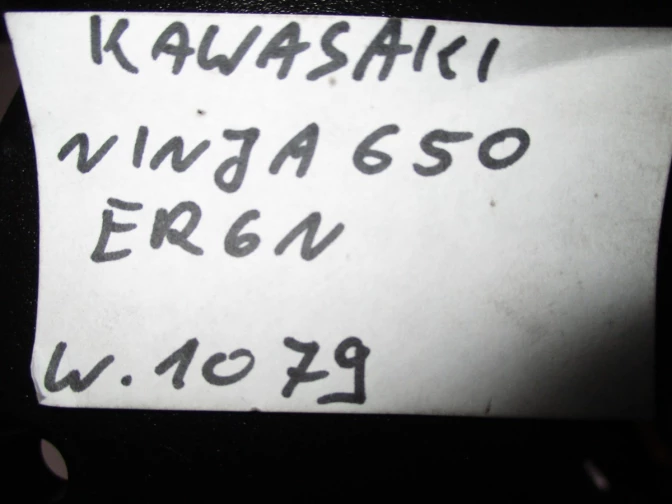 KAWASAKI
NINJA 650
ER6N
W.1079